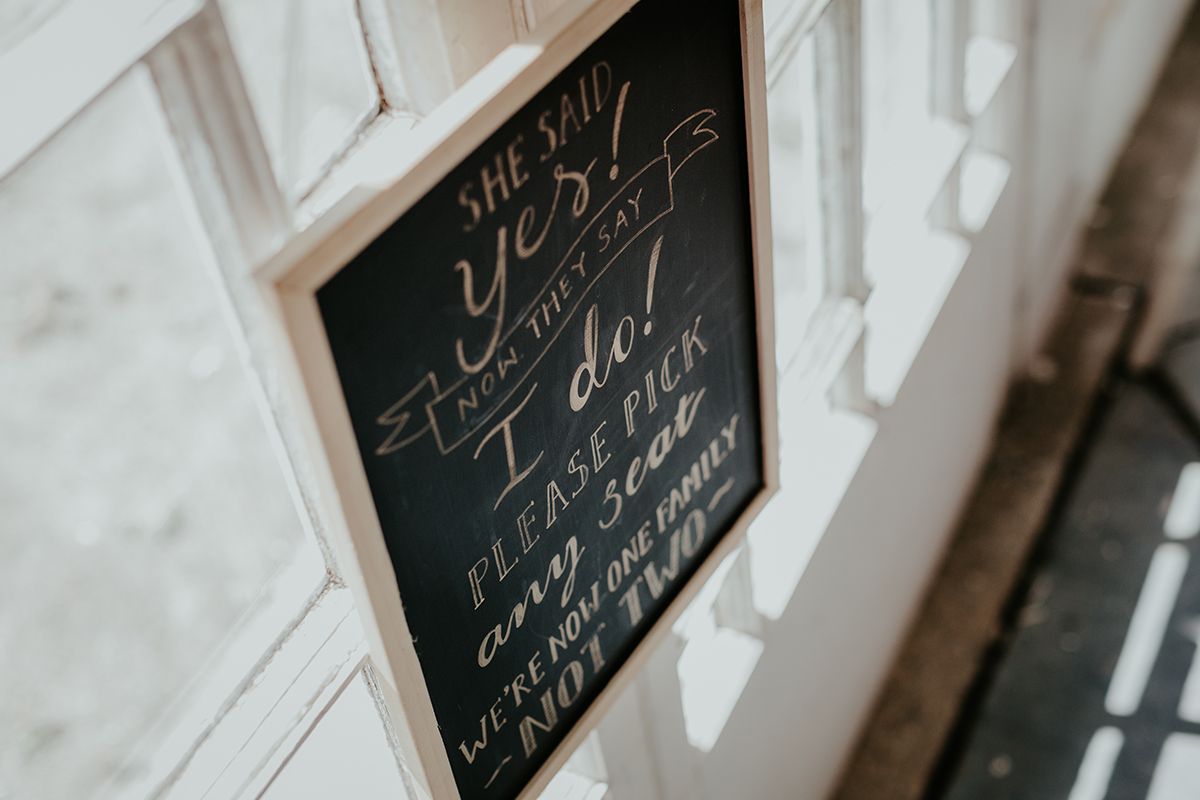 SHE SAID
yes!
NOW THEY SAY
I do!
PLEASE PICK
any seat
WE'RE NOW ONE FAMILY
~ NOT TWO ~